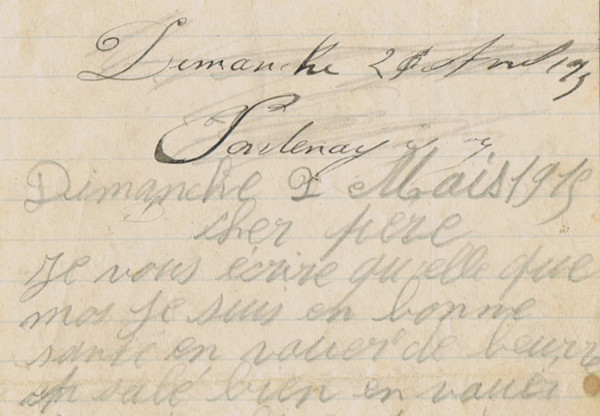 Dimanche 2 Avril 19
Fontenay
Dimanche 2 Mais 1915
cher pere
je vous écrire qu'elle que
mos je suis en bonne
santé en vouer de beurre
salé bien en vouer